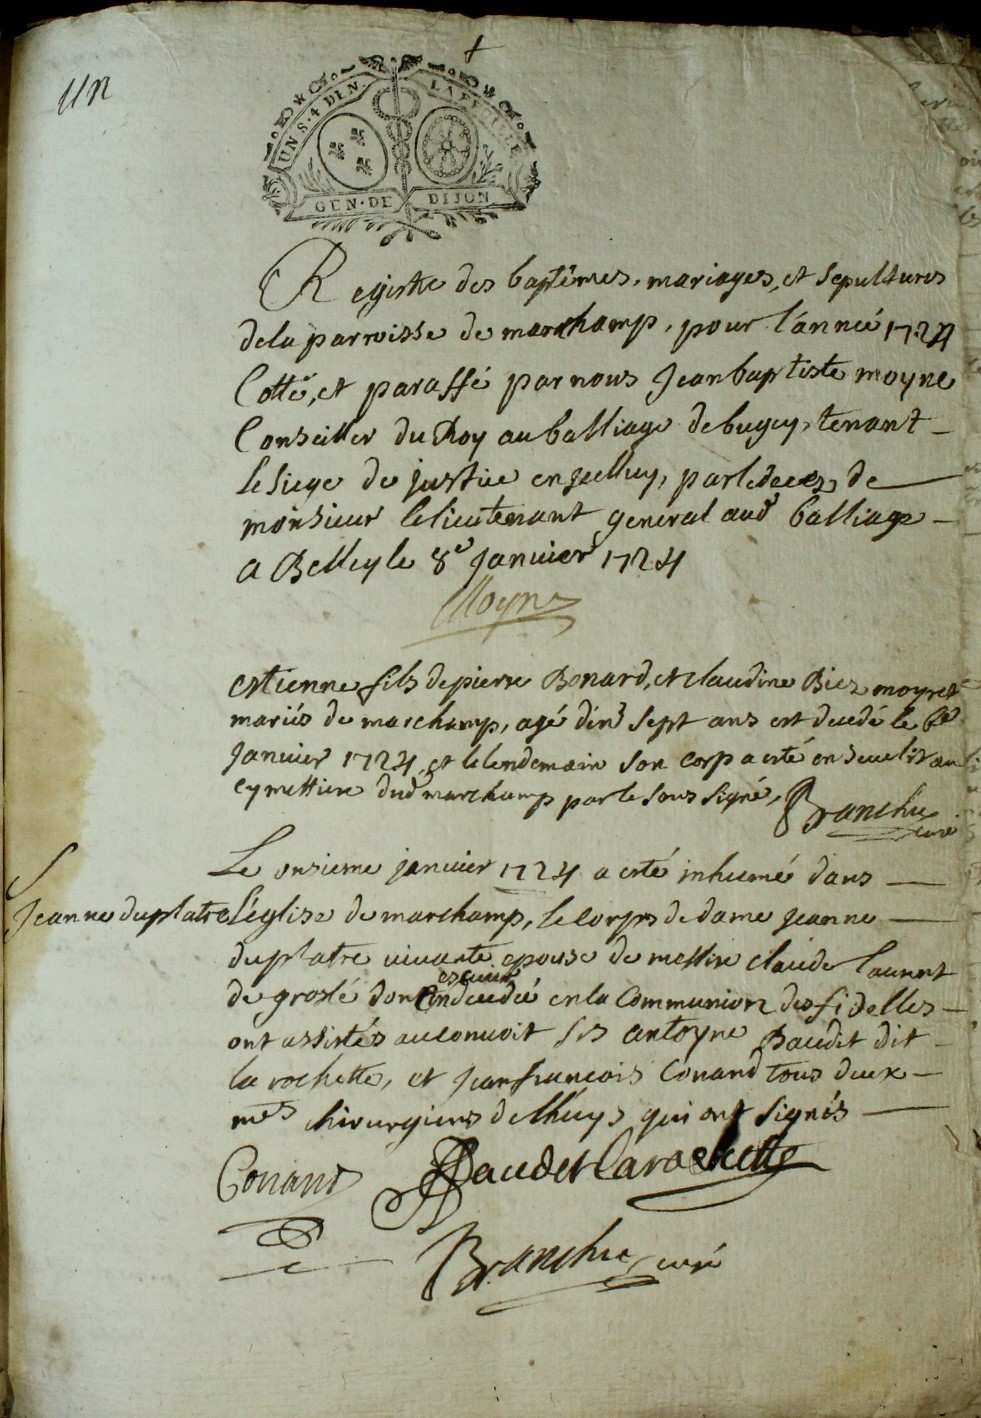 un
UN S. 4 DEN. LA FEUILLE
GEN. DE DIJON
Registre des baptêmes, mariages, et sepultures
dela parroisse de marchamp, pour l'anneé 1724
Cotté, et paraffé par nous Jean baptiste moyne
Conseiller du Roy au balliage de bugey, tenant
le siege de justice en jcelluy, par le deces de
monsieur le lieutenant general aud balliage
a Belley le 8e Janvier 1724
Moyne
estienne fils de pierre Bonard, et claudine Biez moyret
mariés de marchamp, agé d'env sept ans est decedé le
Janvier 1724 et le lendemain son corp a esté enseveli au
cymettiere dud marchamp par le sous signé, Branche
curé
Le onsieme janvier 1724 a esté inhumé dans
Jeanne duplatre
l'église de marchamp, le corps de dame jeanne
duplatre vivante epouse de messire claude laurent
escuier
de groslé decedeé en la Communion des fidelles
ont assistés au convoit srs antoyne Baudet dit
la rochette, et jean francois Conand tous deux
mes chirurgiens de lhuys qui ont signés
Conand Baudet Larochette
Branche curé